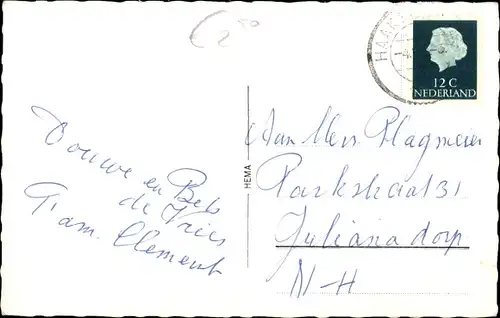 2 50
HAAK
12 C
NEDERLAND
HEMA
Douwe en Bets
de Vries
Fam. Clement
Aan Mevr. Plagmeier
Parkstraat 31
Julianadorp
N-H